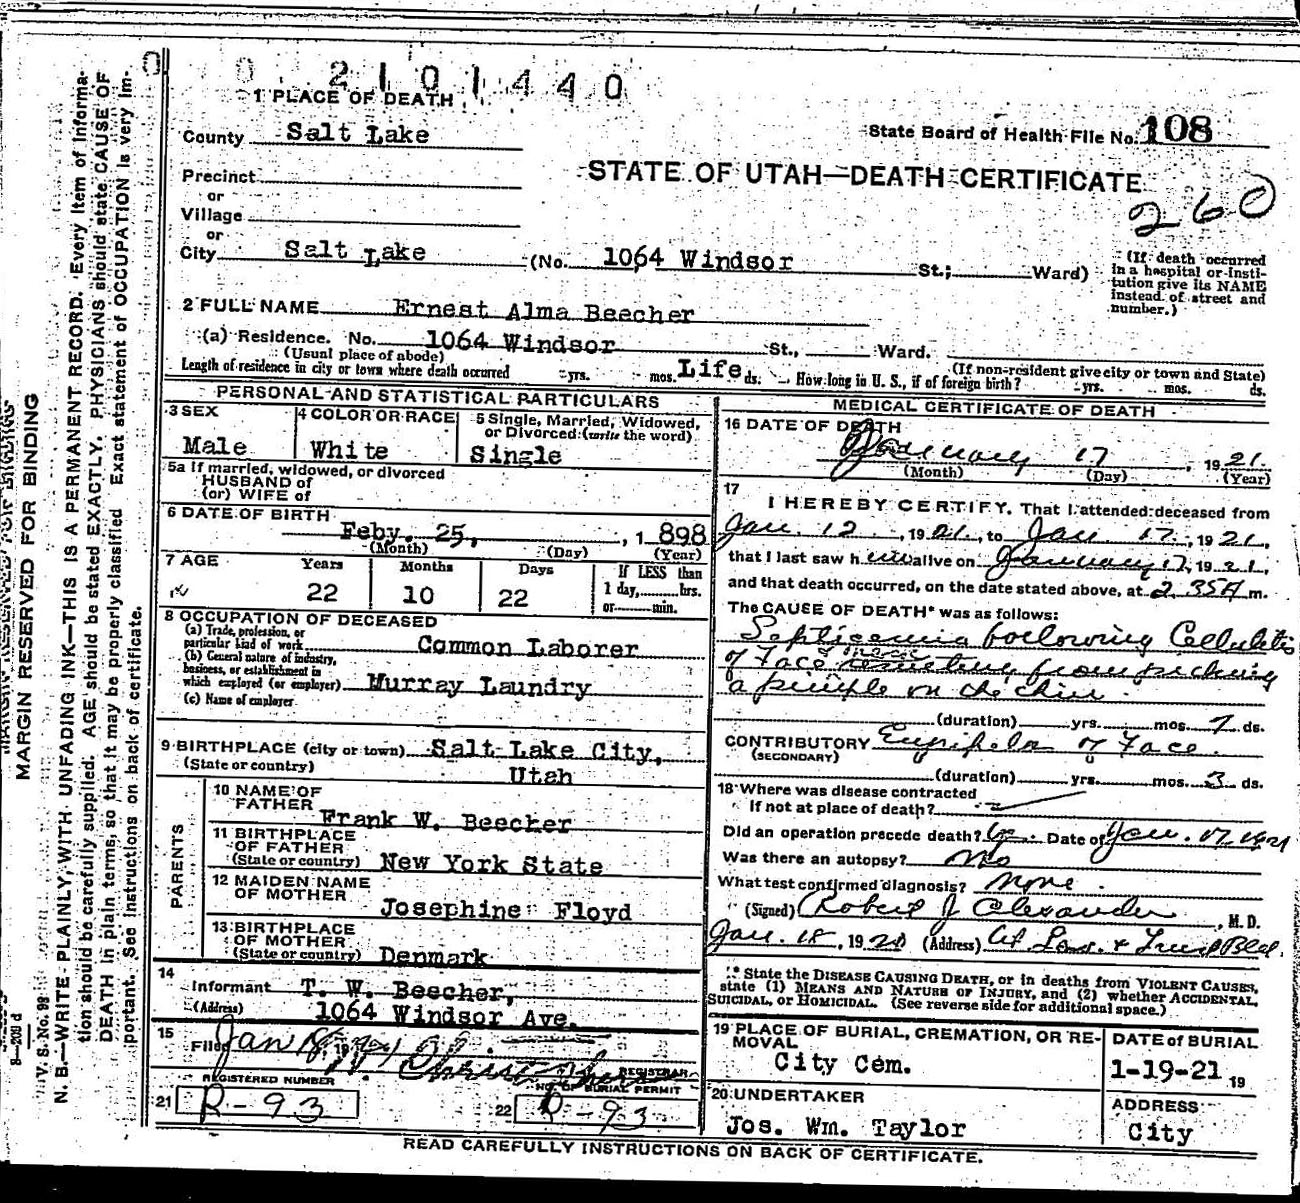 2101440
1 PLACE OF DEATH
County Salt Lake
State Board of Health File No. 108
STATE OF UTAH—DEATH CERTIFICATE
260
Precinct
or
Village
or
City Salt Lake (No. 1064 Windsor St.; Ward)
(If death occurred in a hospital or insti-
tution give its NAME
instead of street and
number.)
2 FULL NAME Ernest Alma Beecher
(a) Residence. No. 1064 Windsor St., Ward.
(Usual place of abode)
(If non-resident give city or town and State)
Length of residence in city or town where death occurred yrs. mos. Life ds. How long in U. S., if of foreign birth? yrs. mos. ds.
PERSONAL AND STATISTICAL PARTICULARS
3 SEX
Male
4 COLOR OR RACE
White
5 Single, Married, Widowed,
or Divorced (write the word)
Single
5a If married, widowed, or divorced
HUSBAND of
(or) WIFE of
6 DATE OF BIRTH
Feby. 25, 1898
(Month) (Day) (Year)
7 AGE
Years Months Days
22 10 22
If LESS than
1 day, hrs.
or min.
8 OCCUPATION OF DECEASED
(a) Trade, profession, or
particular kind of work Common Laborer
(b) General nature of industry,
business, or establishment in
which employed (or employer) Murray Laundry
(c) Name of employer
9 BIRTHPLACE (city or town) Salt Lake City,
(State or country) Utah
PARENTS
10 NAME OF
FATHER
Frank W. Beecher
11 BIRTHPLACE
OF FATHER
(State or country) New York State
12 MAIDEN NAME
OF MOTHER
Josephine Floyd
13 BIRTHPLACE
OF MOTHER
(State or country) Denmark
14
Informant T. W. Beecher,
(Address) 1064 Windsor Ave.
15
Filed Jan 18, 1921
REGISTRAR
REGISTERED NUMBER
21 R-93
NO. OF BURIAL PERMIT
22 R-93
MEDICAL CERTIFICATE OF DEATH
16 DATE OF DEATH
January 17, 1921
(Month) (Day) (Year)
17
I HEREBY CERTIFY, That I attended deceased from
Jan. 12, 1921, to Jan. 17, 1921,
that I last saw him alive on January 17, 1921,
and that death occurred, on the date stated above, at 2.35A m.
The CAUSE OF DEATH* was as follows:
Septicemia following Cellulitis
of Face resulting from picking
a pimple on the chin.
(duration) yrs. mos. 7 ds.
CONTRIBUTORY Erysipelas of Face.
(SECONDARY)
(duration) yrs. mos. 3 ds.
18 Where was disease contracted
If not at place of death?
Did an operation precede death? Date of Jan. 17, 1921
Was there an autopsy? No
What test confirmed diagnosis? None.
(Signed) Robert J Alexander, M. D.
Jan. 18, 1921 (Address)
* State the DISEASE CAUSING DEATH, or in deaths from VIOLENT CAUSES,
state (1) MEANS AND NATURE OF INJURY, and (2) whether ACCIDENTAL,
SUICIDAL, or HOMICIDAL. (See reverse side for additional space.)
19 PLACE OF BURIAL, CREMATION, OR RE-
MOVAL
City Cem.
DATE of BURIAL
1-19-21 19
20 UNDERTAKER
Jos. Wm. Taylor
ADDRESS
City
READ CAREFULLY INSTRUCTIONS ON BACK OF CERTIFICATE.
MARGIN RESERVED FOR BINDING
V. S. No. 98
N. B.—WRITE PLAINLY, WITH UNFADING INK—THIS IS A PERMANENT RECORD. Every item of informa-
tion should be carefully supplied. AGE should be stated EXACTLY. PHYSICIANS should state CAUSE OF
DEATH in plain terms, so that it may be properly classified. Exact statement of OCCUPATION is very im-
portant. See instructions on back of certificate.